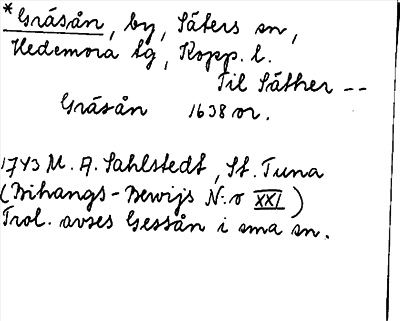 *Gräsån, by, Säters sn,
Hedemora tg, Kopp. l.
Til Säther --
Gräsån 1638 or.
1743 M. A. Sahlstedt, St. Tuna
(Bihangs-Bewijs N:o XXI)
Trol. avses Gessån i sma sn.